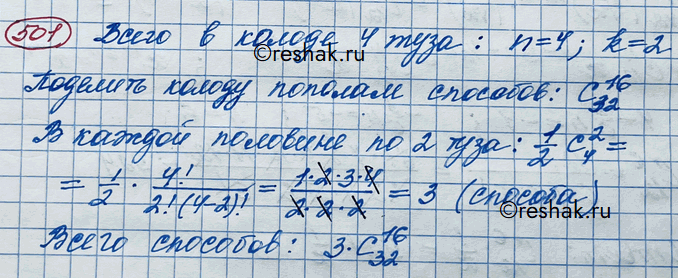 501 Всего в колоде 4 туза: n=4; k=2
Поделить колоду пополам способов: C₃₂¹⁶
В каждой половине по 2 туза: 1/2 C₄² =
= 1/2 · 4!/2!(4-2)! = 1·2·3·4/2·2·2 = 3 (способа)
Всего способов: 3·C₃₂¹⁶
©reshak.ru
©reshak.ru
©reshak.ru
©reshak.ru